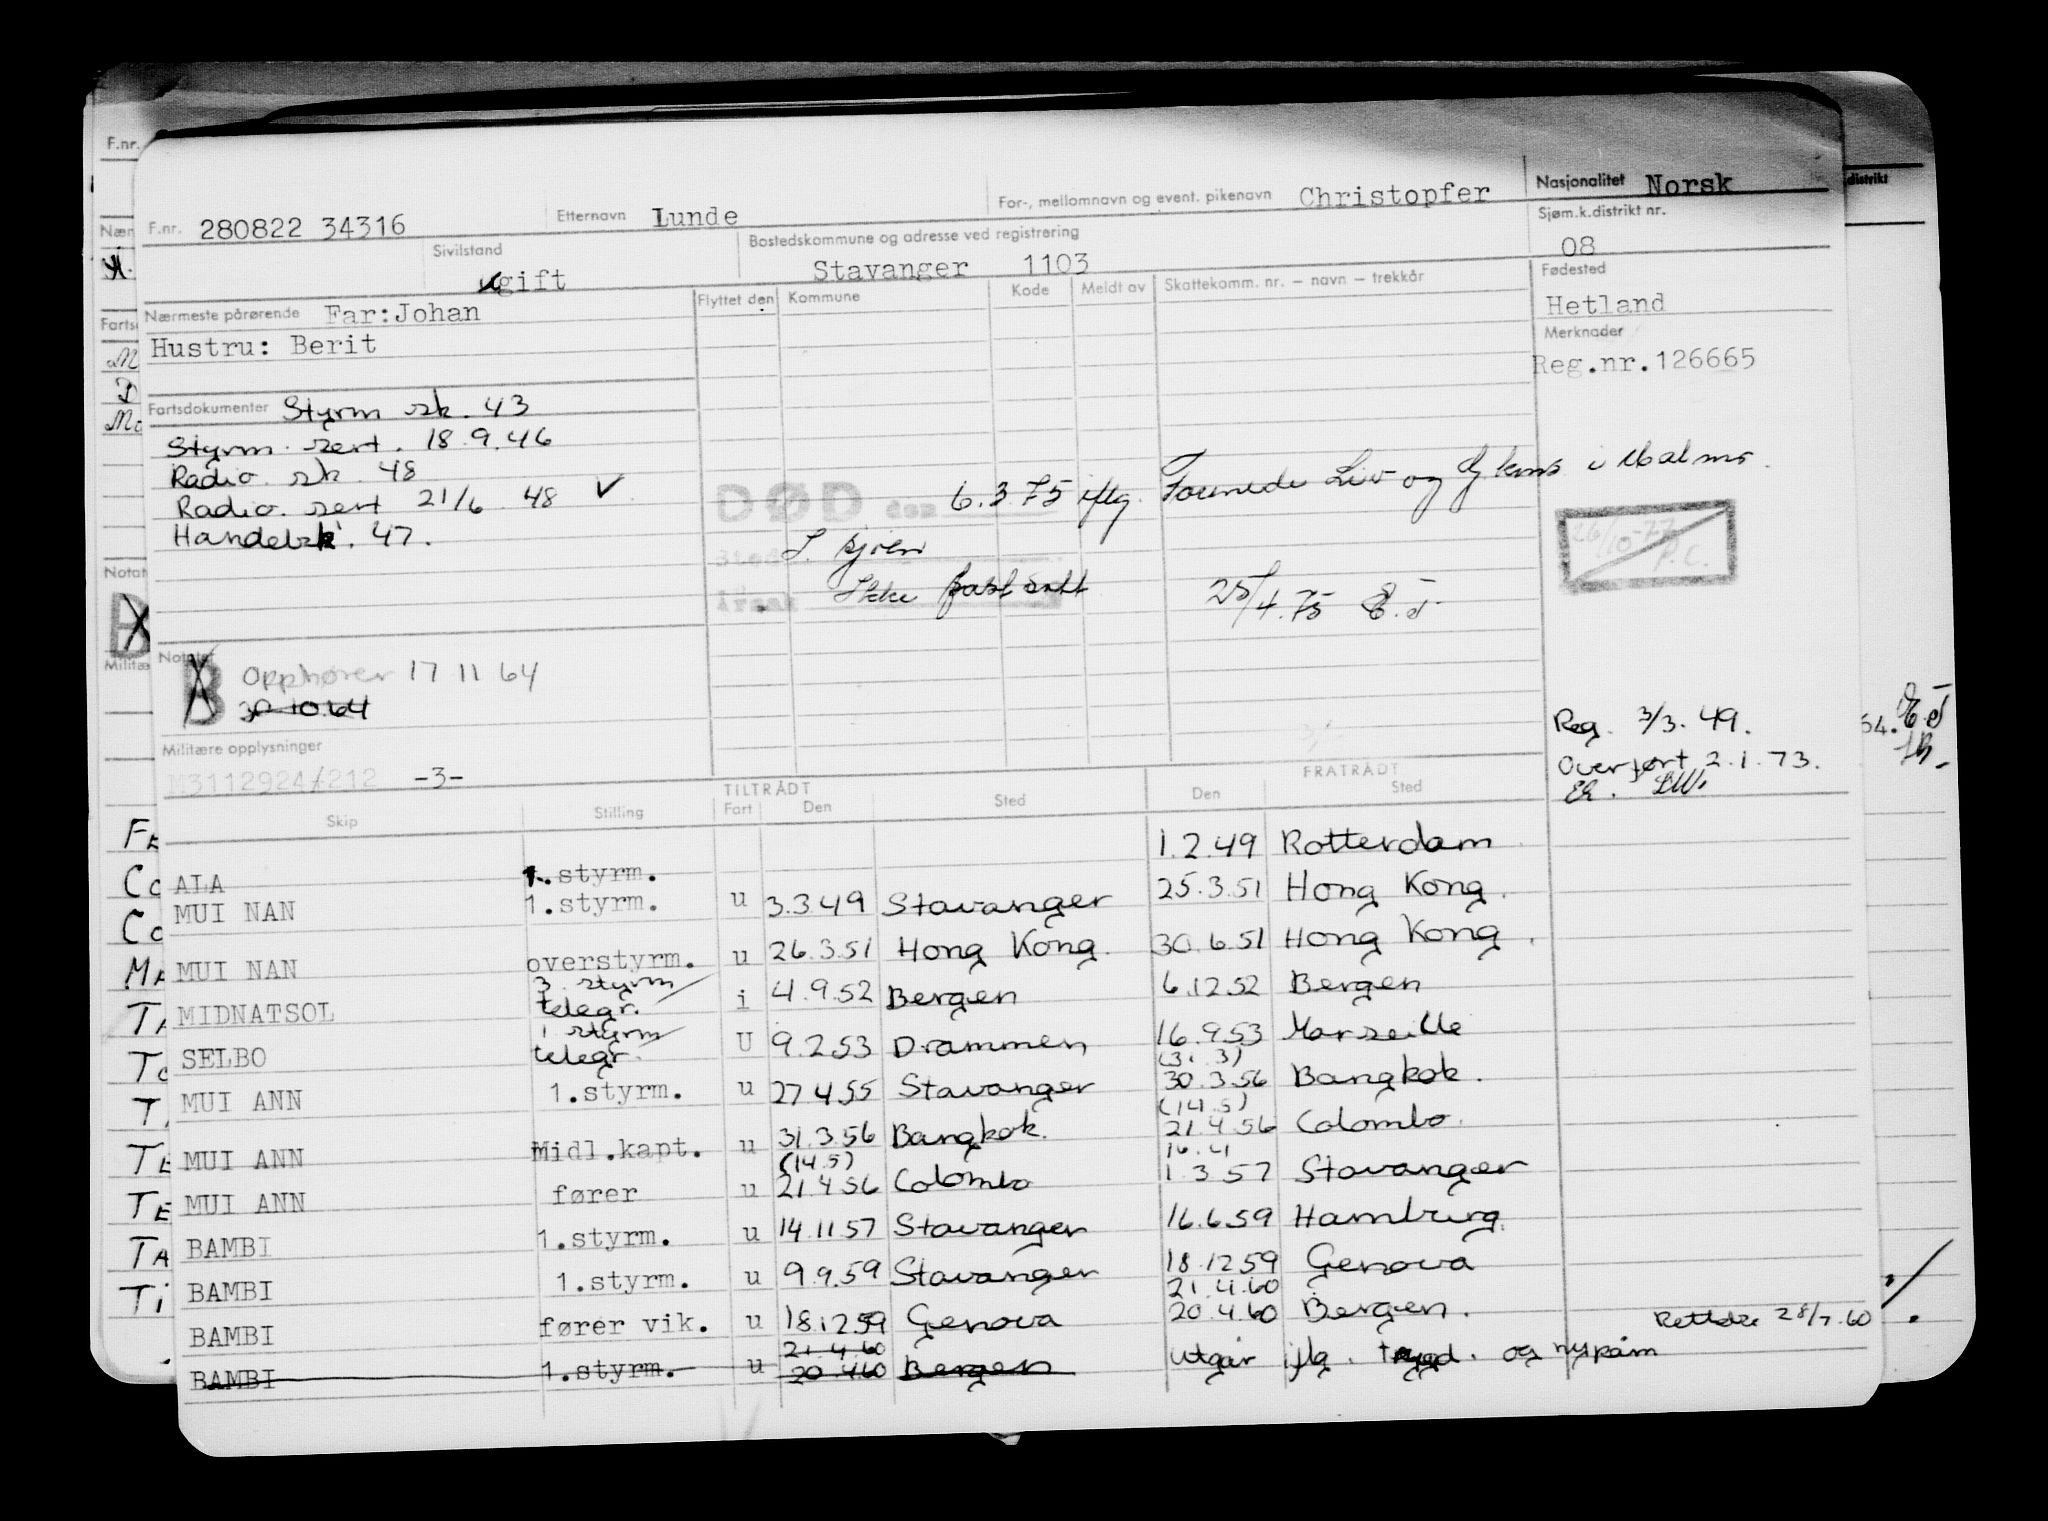 F.nr. 280822 34316 Etternavn Lunde For-, mellomnavn og event. pikenavn Christopfer Nasjonalitet Norsk
Sivilstand gift Bostedskommune og adresse ved registrering Stavanger 1103 Sjøm.k.distrikt nr. 08
Nærmeste pårørende Far:Johan Flyttet den Kommune Kode Meldt av Skattekomm. nr. – navn – trekkår Fødested Hetland
Hustru: Berit
Merknader
Reg.nr.126665
Fartsdokumenter Styrm sk. 43
Styrm. sert. 18.9.46
Radio. sk. 48
Radio. sert 21/6 48 ✓
Handelsk. 47.
DØD den 6.3.75 iflg.
Sted
Årsak Ikke
25/4.75 E.T
26/10-77
P.C.
Notater
B Opphører 17 11 64
30 10.64
Militære opplysninger
M3112924/212 -3-
Reg. 3/3. 49.
Overført 2.1.73.
TILTRÅDT FRATRÅDT
Skip Stilling Fart Den Sted Den Sted
ALA 1.styrm. 1.2.49 Rotterdam
MUI NAN 1.styrm. u 3.3.49 Stavanger 25.3.51 Hong Kong.
MUI NAN overstyrm. u 26.3.51 Hong Kong. 30.6.51 Hong Kong.
3. styrm
MIDNATSOL telegr. i 4.9.52 Bergen 6.12.52 Bergen
1 styrm
SELBO telegr. U 9.2.53 Drammen 16.9.53 Marseille
(31.3)
MUI ANN 1.styrm. u 27.4.55 Stavanger 30.3.56 Bangkok.
(14.5)
MUI ANN Midl.kapt. u 31.3.56 Bangkok. 21.4.56 Colombo.
(14.5)
MUI ANN fører u 21.4.56 Colombo 1.3.57 Stavanger
BAMBI 1.styrm. u 14.11.57 Stavanger 16.6.59 Hamburg.
BAMBI 1.styrm. u 9.9.59 Stavanger 18.12.59 Genova
21.4.60
BAMBI fører vik. u 18.12.59 Genova 20.4.60 Bergen.
21.4.60
BAMBI 1.styrm. u 20.4.60 Bergen utgår iflg. trygd. og
Rettelse 28/7.60